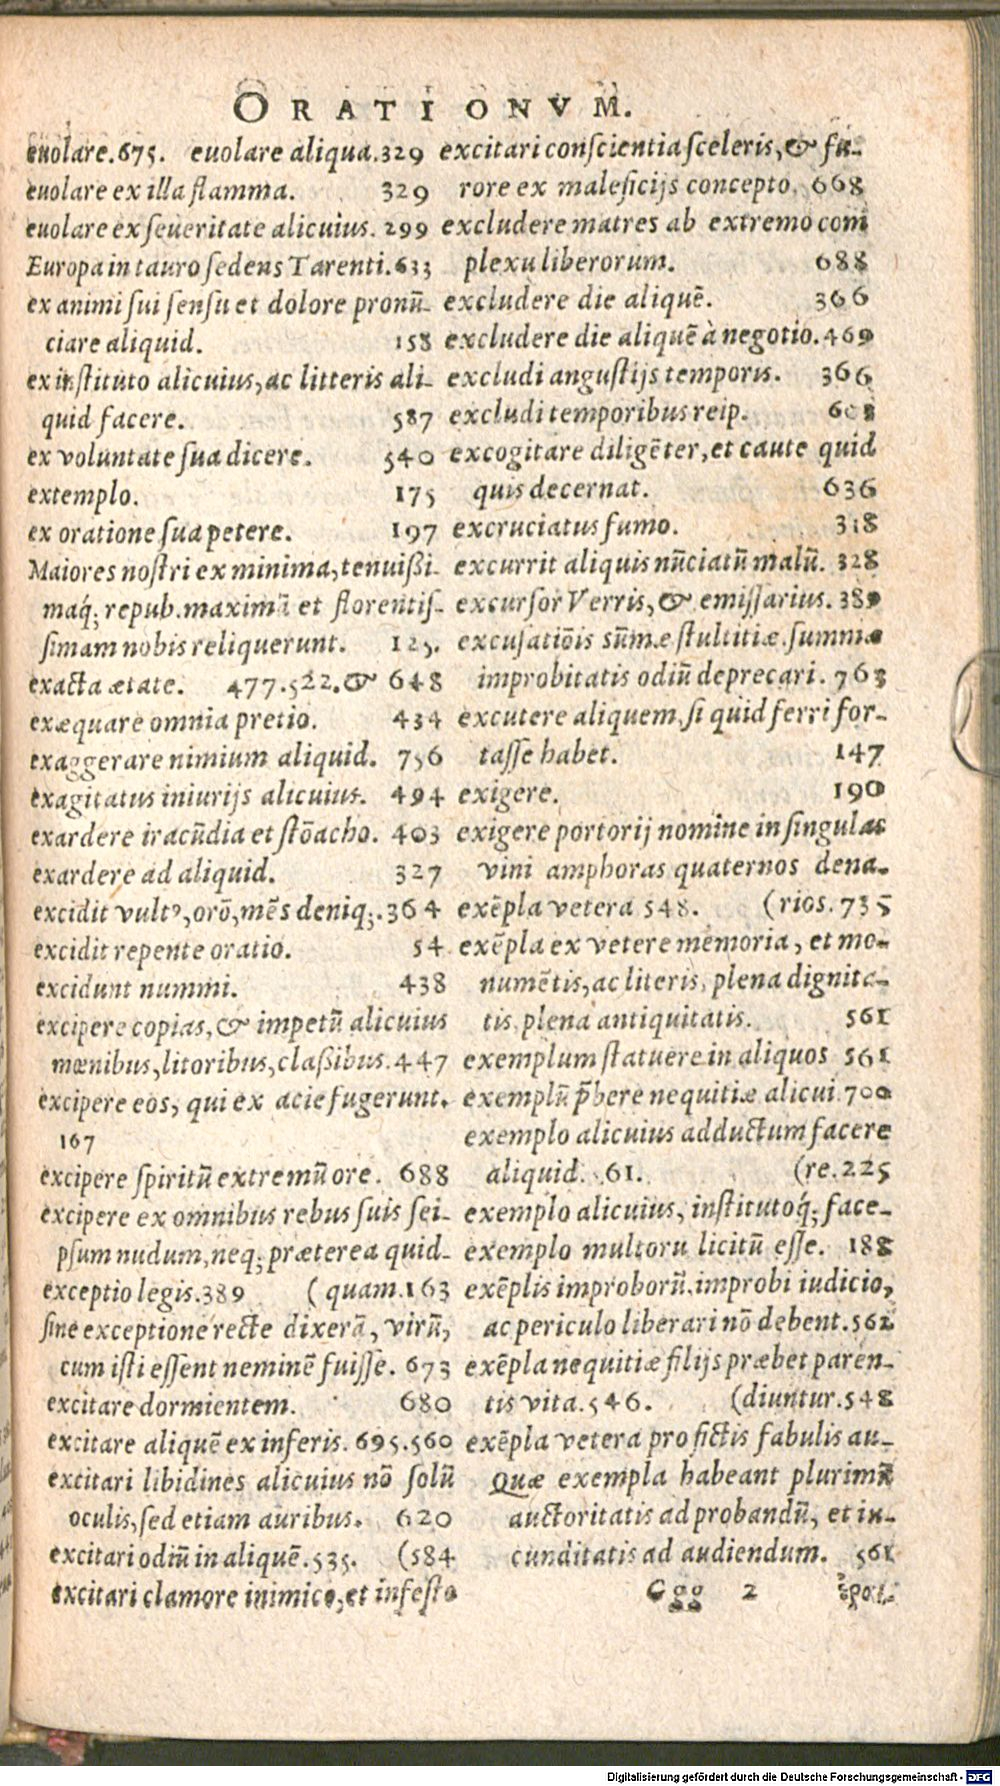 ORATIONVM.
euolare.675. euolare aliqua.329
euolare ex illa flamma. 329
euolare ex seueritate alicuius. 299
Europa in tauro sedens Tarenti.633
ex animi sui sensu et dolore pronū-
ciare aliquid. 158
ex instituto alicuius, ac litteris ali-
quid facere. 587
ex voluntate sua dicere. 540
extemplo. 175
ex oratione sua petere. 197
Maiores nostri ex minima, tenuißi-
maq́; repub. maximā et florentis-
simam nobis reliquerunt. 125.
exacta ætate. 477.522.& 648
exæquare omnia pretio. 434
exaggerare nimium aliquid. 756
exagitatus iniurijs alicuius. 494
exardere iracūdia et stōacho. 403
exardere ad aliquid. 327
excidit vultꝰ, orō, mēs deniq;.364
excidit repente oratio. 54
excidunt nummi. 438
excipere copias, & impetū alicuius
mœnibus, litoribus, claßibus.447
excipere eos, qui ex acie fugerunt.
167
excipere spiritū extremū ore. 688
excipere ex omnibus rebus suis sei-
psum nudum, neq; præterea quid-
exceptio legis.389 (quam.163
sine exceptione recte dixerā, virū,
cum isti essent neminē fuisse. 673
excitare dormientem. 680
excitare aliquē ex inferis. 695.560
excitari libidines alicuius nō solū
oculis, sed etiam auribus. 620
excitari odiū in aliquē.535. (584
excitari clamore inimico, et infesto
excitari conscientia sceleris, & fu-
rore ex maleficijs concepto. 668
excludere matres ab extremo com
plexu liberorum. 688
excludere die aliquē. 366
excludere die aliquē à negotio.469
excludi angustijs temporis. 366
excludi temporibus reip. 608
excogitare diligēter, et caute quid
quis decernat. 636
excruciatus fumo. 318
excurrit aliquis nūciatū malū. 328
excursor Verris, & emissarius. 389
excusatiōis sūmæ stultitiæ. summæ
improbitatis odiū deprecari. 763
excutere aliquem, si quid ferri for-
tasse habet. 147
exigere. 190
exigere portorij nomine in singulas
vini amphoras quaternos dena-
exēpla vetera 548. (rios.735
exēpla ex vetere memoria, et mo-
numētis, ac literis, plena dignita-
tis, plena antiquitatis. 561
exemplum statuere in aliquos 561
exemplū p̄bere nequitiæ alicui.700
exemplo alicuius adductum facere
aliquid. 61. (re.225
exemplo alicuius, institutoq́; face-
exemplo multoru licitū esse. 188
exēplis improborū. improbi iudicio,
ac periculo liberari nō debent.562
exēpla nequitiæ filijs præbet paren-
tis vita.546. (diuntur.548
exēpla vetera pro fictis fabulis au-
Quæ exempla habeant plurimū
auctoritatis ad probandū, et iu-
cunditatis ad audiendum. 561
Ggg 2
Digitalisierung gefördert durch die Deutsche Forschungsgemeinschaft - DFG